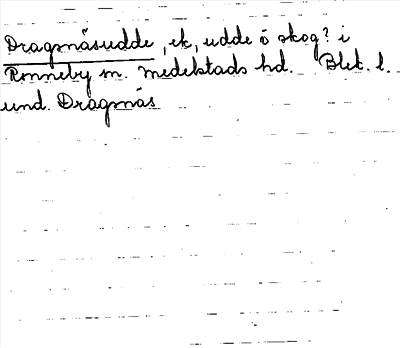 Dragsnäsudde, ek, udde ö skog? i
Ronneby sn. Medelstads hd. Blek. l.
und. Dragsnäs